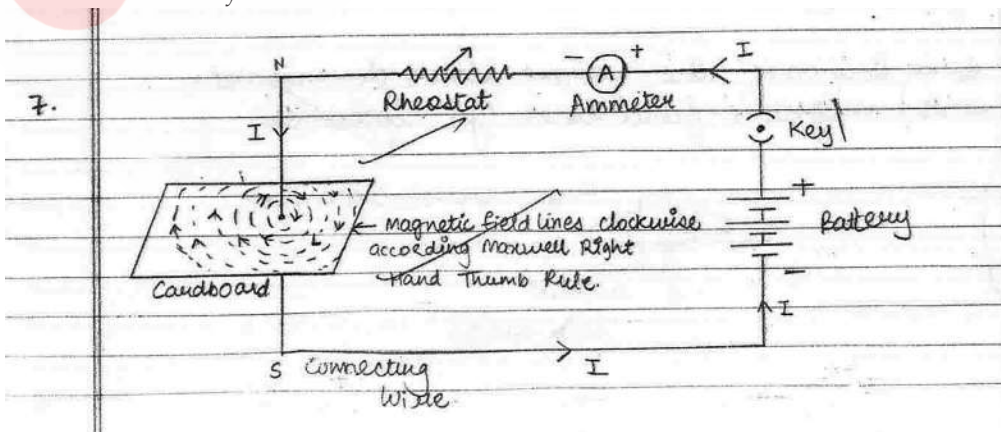 7.
N
Rheostat
- +
A
Ammeter
I
I
Key
+
Battery
-
Magnetic field lines clockwise
according Maxwell Right
Hand Thumb Rule.
Cardboard
I
S Connecting
Wire
I